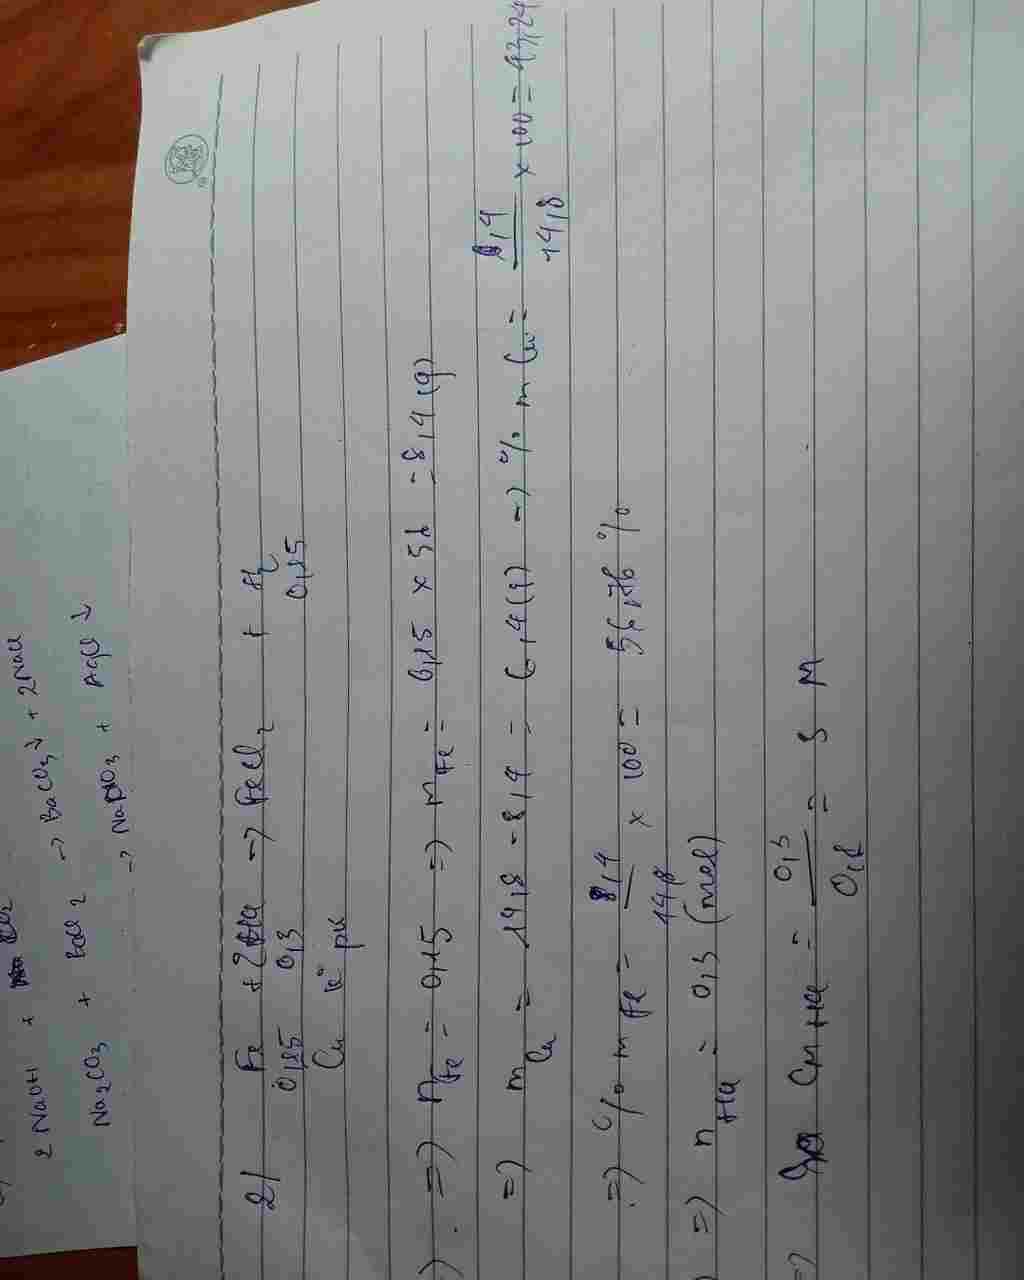 2 NaOH +
Na2CO3 + BaCl2 -> BaCO3↓ + 2NaCl
-> NaNO3 + AgCl ↓
2/ Fe + 2HCl -> FeCl2 + H2
0,15 0,3 0,15
Cu k° pư
=> nFe = 0,15 => mFe = 0,15 x 56 = 8,4 (g)
=> mCu = 14,8 - 8,4 = 6,4 (g) => % m Cu = 6,4/14,8 x 100 = 43,24
=> % m Fe = 8,4/14,8 x 100 = 56,76 %
=> nHCl = 0,3 (mol)
=> CM HCl = 0,3/0,1 = 3 M